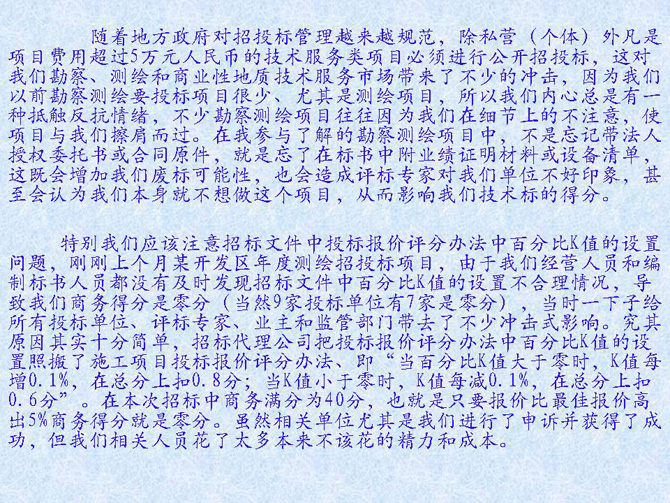 随着地方政府对招投标管理越来越规范，除私营（个体）外凡是
项目费用超过5万元人民币的技术服务类项目必须进行公开招投标，这对
我们勘察、测绘和商业性地质技术服务市场带来了不少的冲击，因为我们
以前勘察测绘要投标项目很少、尤其是测绘项目，所以我们内心总是有一
种抵触反抗情绪，不少勘察测绘项目往往因为我们在细节上的不注意，使
项目与我们擦肩而过。在我参与了解的勘察测绘项目中，不是忘记带法人
授权委托书或合同原件，就是忘了在标书中附业绩证明材料或设备清单，
这既会增加我们废标可能性，也会造成评标专家对我们单位不好印象，甚
至会认为我们本身就不想做这个项目，从而影响我们技术标的得分。
特别我们应该注意招标文件中投标报价评分办法中百分比K值的设置
问题，刚刚上个月某开发区年度测绘招投标项目，由于我们经营人员和编
制标书人员都没有及时发现招标文件中百分比K值的设置不合理情况，导
致我们商务得分是零分（当然9家投标单位有7家是零分），当时一下子给
所有投标单位、评标专家、业主和监管部门带去了不少冲击式影响。究其
原因其实十分简单，招标代理公司把投标报价评分办法中百分比K值的设
置照搬了施工项目投标报价评分办法、即“当百分比K值大于零时，K值每
增0.1%，在总分上扣0.8分；当K值小于零时，K值每减0.1%，在总分上扣
0.6分”。在本次招标中商务满分为40分，也就是只要报价比最佳报价高
出5%商务得分就是零分。虽然相关单位尤其是我们进行了申诉并获得了成
功，但我们相关人员花了太多本来不该花的精力和成本。